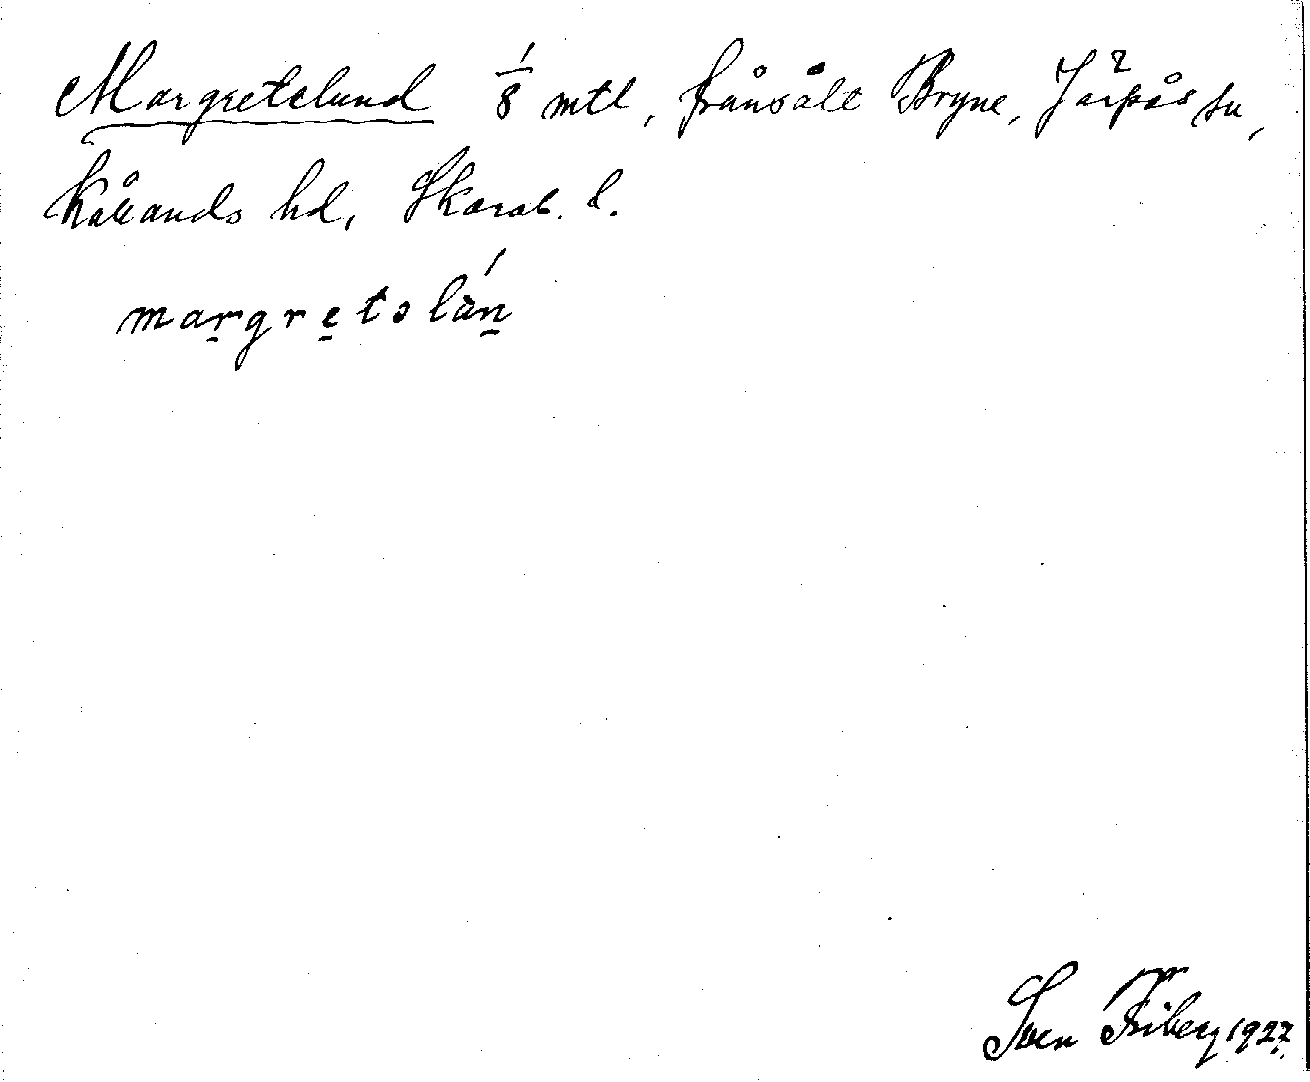 Margretelund 1/8 mtl, frånsålt Bryne, Järpås sn,
Kållands hd, Skarab. l.
margretəlán
Sven Friberg 1927.